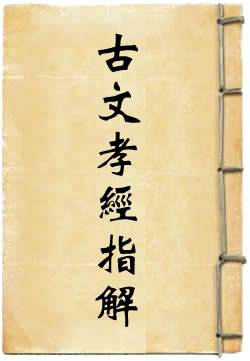 古文孝經指解